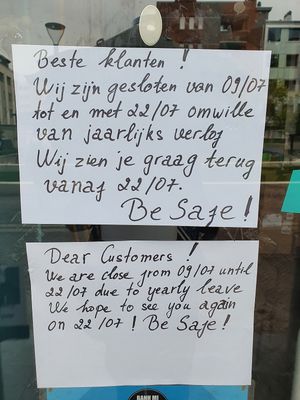 Beste klanten !
Wij zijn gesloten van 09/07
tot en met 22/07 omwille
van jaarlijks verlof
Wij zien je graag terug
vanaf 22/07.
Be Safe !
Dear Customers !
We are close from 09/07 until
22/07 due to yearly leave
We hope to see you again
on 22/07 ! Be Safe !